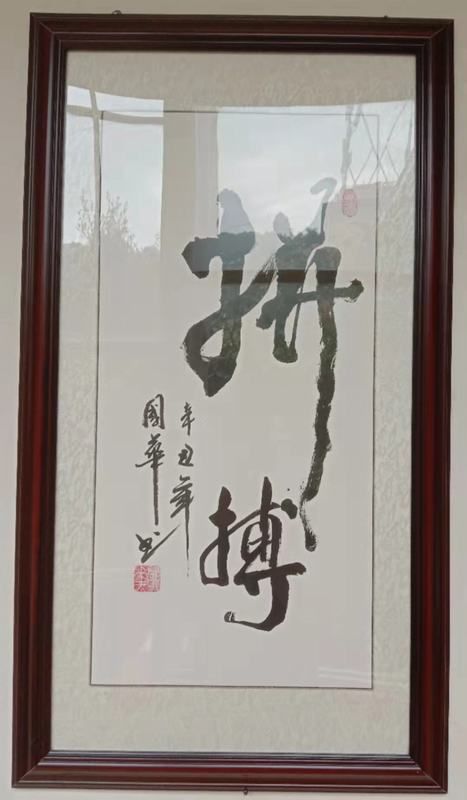 拼搏
辛丑年
國華书